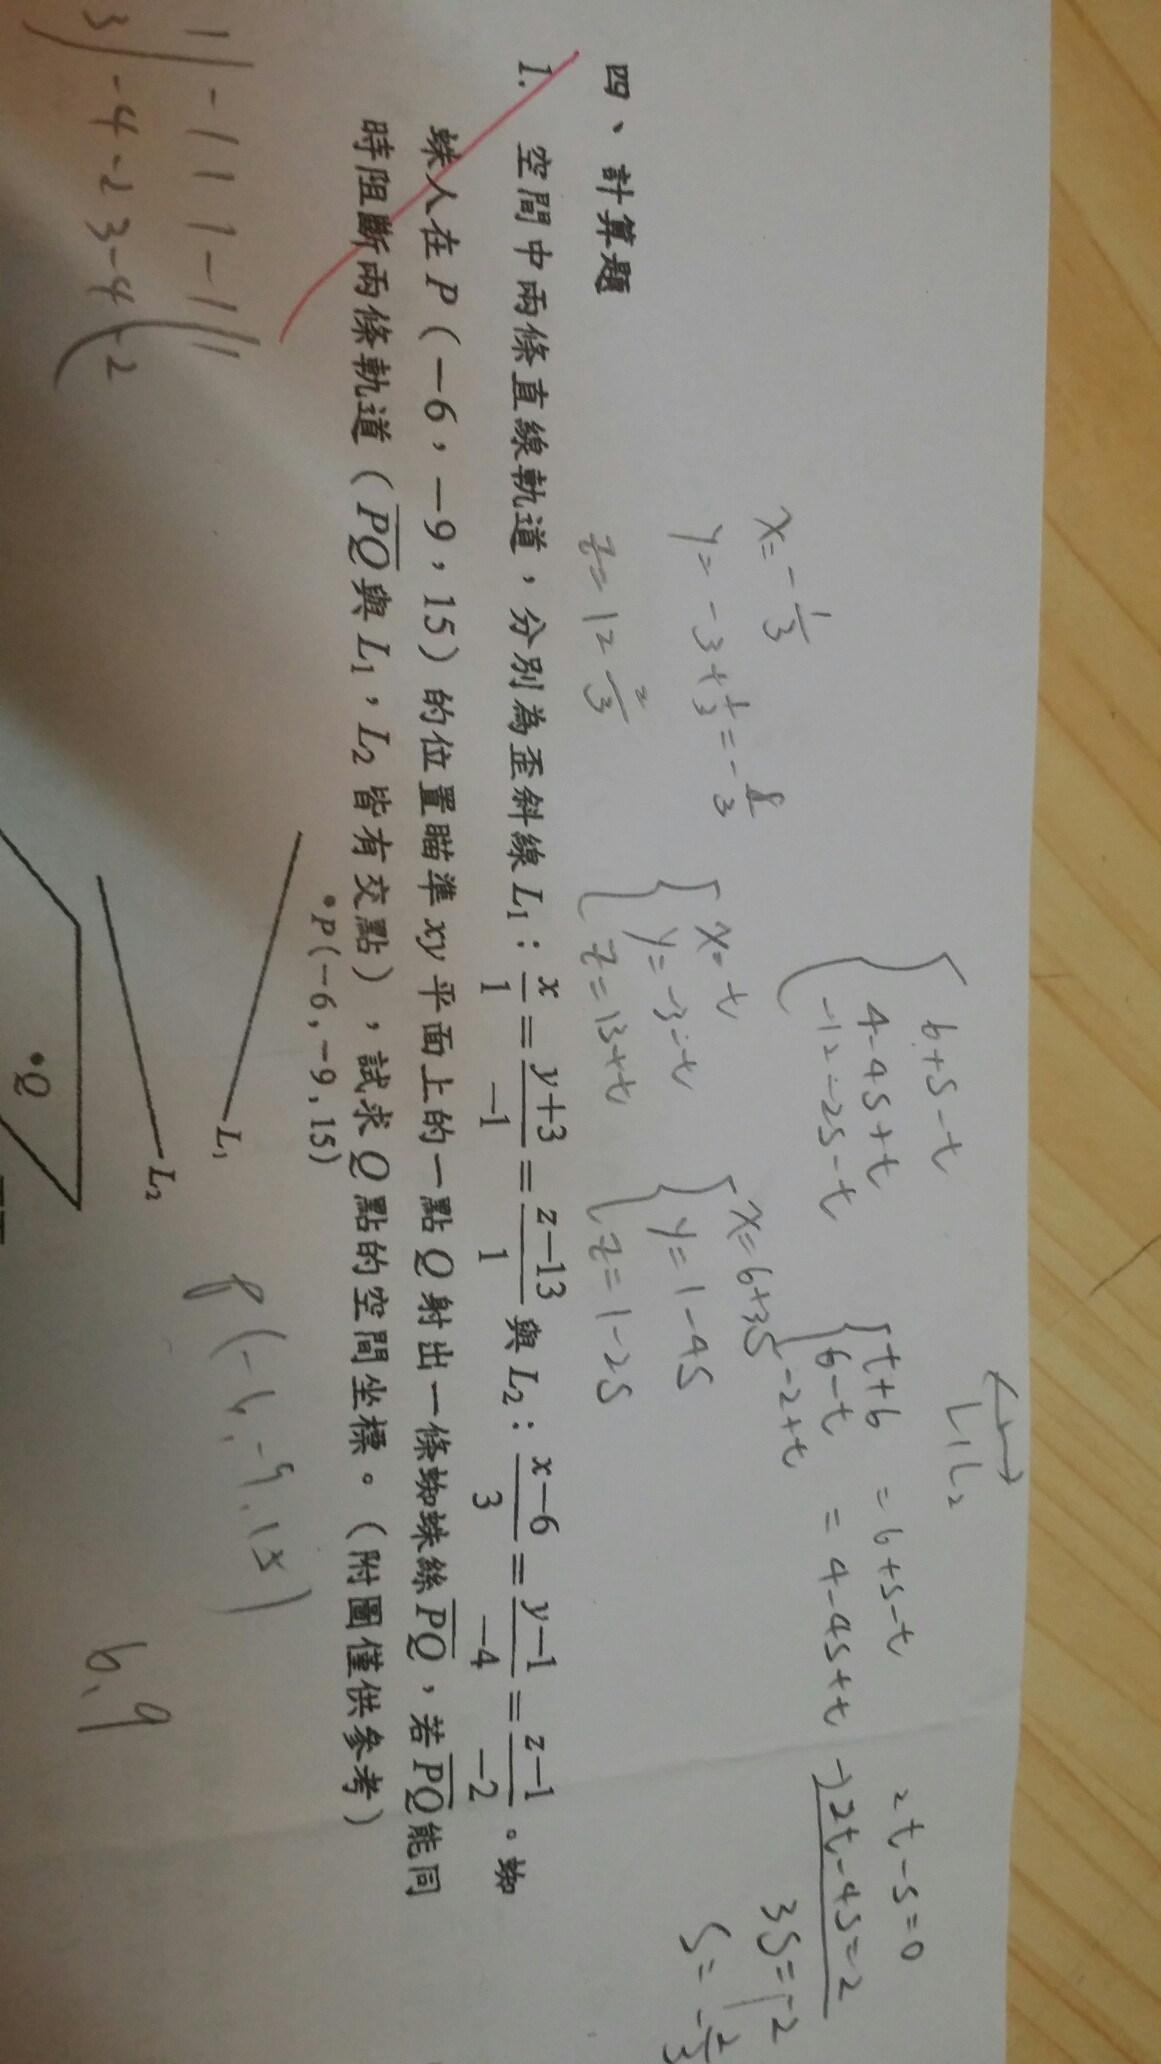 四、計算題
1. 空間中兩條直線軌道，分別為歪斜線 L₁：x/1 = (y+3)/−1 = (z−13)/1 與 L₂：(x−6)/3 = (y−1)/−4 = (z−1)/−2。蜘
蛛人在 P（−6，−9，15）的位置瞄準 xy 平面上的一點 Q 射出一條蜘蛛絲 P̅Q̅，若 P̅Q̅ 能同
時阻斷兩條軌道（P̅Q̅ 與 L₁，L₂ 皆有交點），試求 Q 點的空間坐標。（附圖僅供參考）
•P(−6, −9, 15)
L₁
L₂
•Q
x=-1/3
y=-3+1/3=-8/3
z=12 2/3
x=t
y=-3-t
z=13+t
6+s-t
4-4s+t
-12-2s-t
x=6+3s
y=1-4s
z=1-2s
L₁L₂
t+6 = 6+s-t
6-t = 4-4s+t
-2+t
2t-s=0
-)2t-4s=2
3s=-2
s=-2/3
P(-6,-9,15)
6,9
1 | -1 1 1 -1 | 1
3 | -4 -2 3 -4 | -2